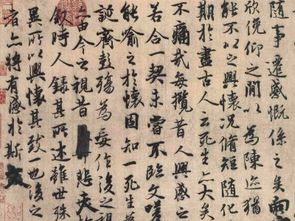 隨事遷感慨係之矣向
欣俛仰之閒以為陳迹猶
能不以之興懷況脩短隨化
期於盡古人云死生亦大矣
不痛哉每攬昔人興感
若合一契未嘗不臨文嗟
能喻之於懷固知一死生為
誕齊彭殤為妄作後之
由今之視昔悲夫
敘時人錄其所述雖世殊
異所以興懷其致一也後之
者亦將有感於斯文